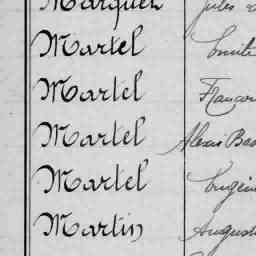 Marquez Jules
Martel Emile
Martel Françoi
Martel Alexis Bas
Martel Eugèn
Martin August